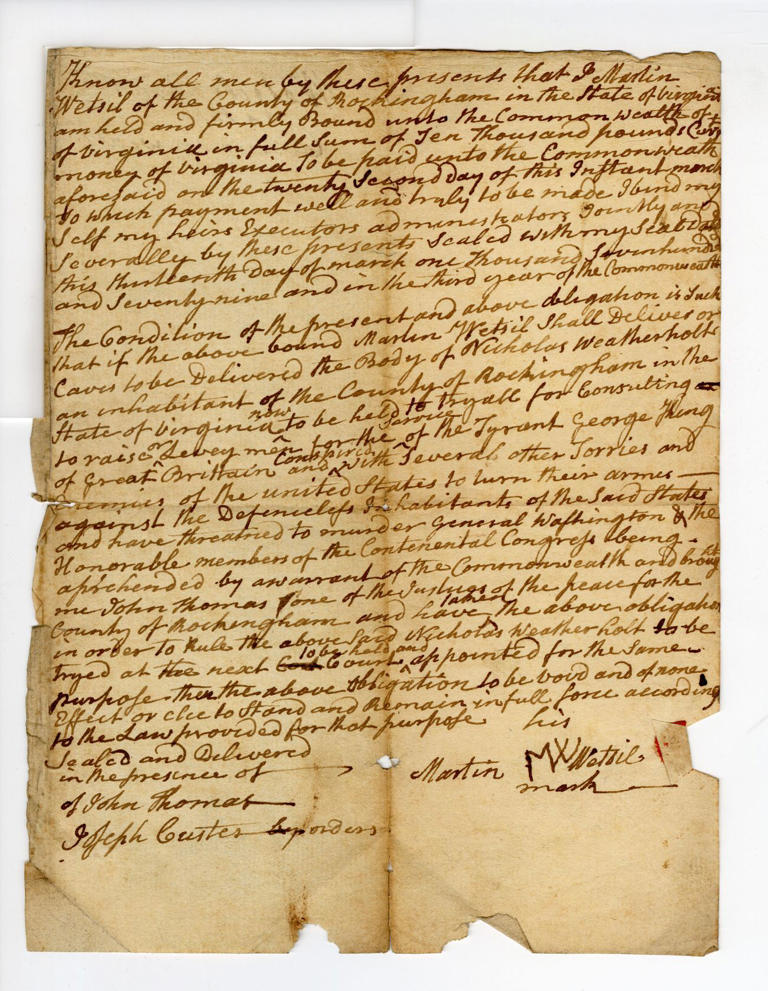 Know all men by these presents that I Martin
Wetsil of the County of Rockingham in the State of virginia
am held and firmly Bound unto the Common wealth of
of virginia in full Sum of Ten Thousand pounds Curr
money of virginia To be paid unto the Commonweath
aforesaid on the twenty Second Day of this Instant march
To which payment well and truly to be made I bind my
Self my heirs Executors administrators Jointly and
Severally by these presents Sealed with my Seal Dated
this thirteenth Day of march one Thousand Sevenhundred
and Seventy nine and in the third year of the Commonwealth
The Condition of the present and above obligation is Such
that if the above bound Martin Wetsil Shall Deliver or
Caus to be Delivered the Body of Nicholas Weatherholt
an inhabitant of the County of Rockingham in the
State of virginia now to be held to tryall for Consulting
to raise or Levey men for the Service of the Tyrant George King
of Great Brittain and Conspired with Several other Torries and
Enemies of the united States to turn their armes
against the Defenceless Inhabitants of the Said States
and have threatned to murder General Washington & the
Honorable members of the Contenental Congress being
aprehended by a warrant of the Commonwealth and brought
me John Thomas one of the Justices of the peace for the
County of Rockingham and have taken the above obligation
in order to Rule the above Said Nicholas weatherholt to be
tryed at the next Court to be held and appointed for the Same
purpose then the above obligation to be void and of none
Effect or else to Stand and Remain in full force according
to the Law provided for that purpose
Sealed and Delivered
in the presence of
of John Thomas
Joseph Custer by orders
his
Martin MW Wetsil
mark